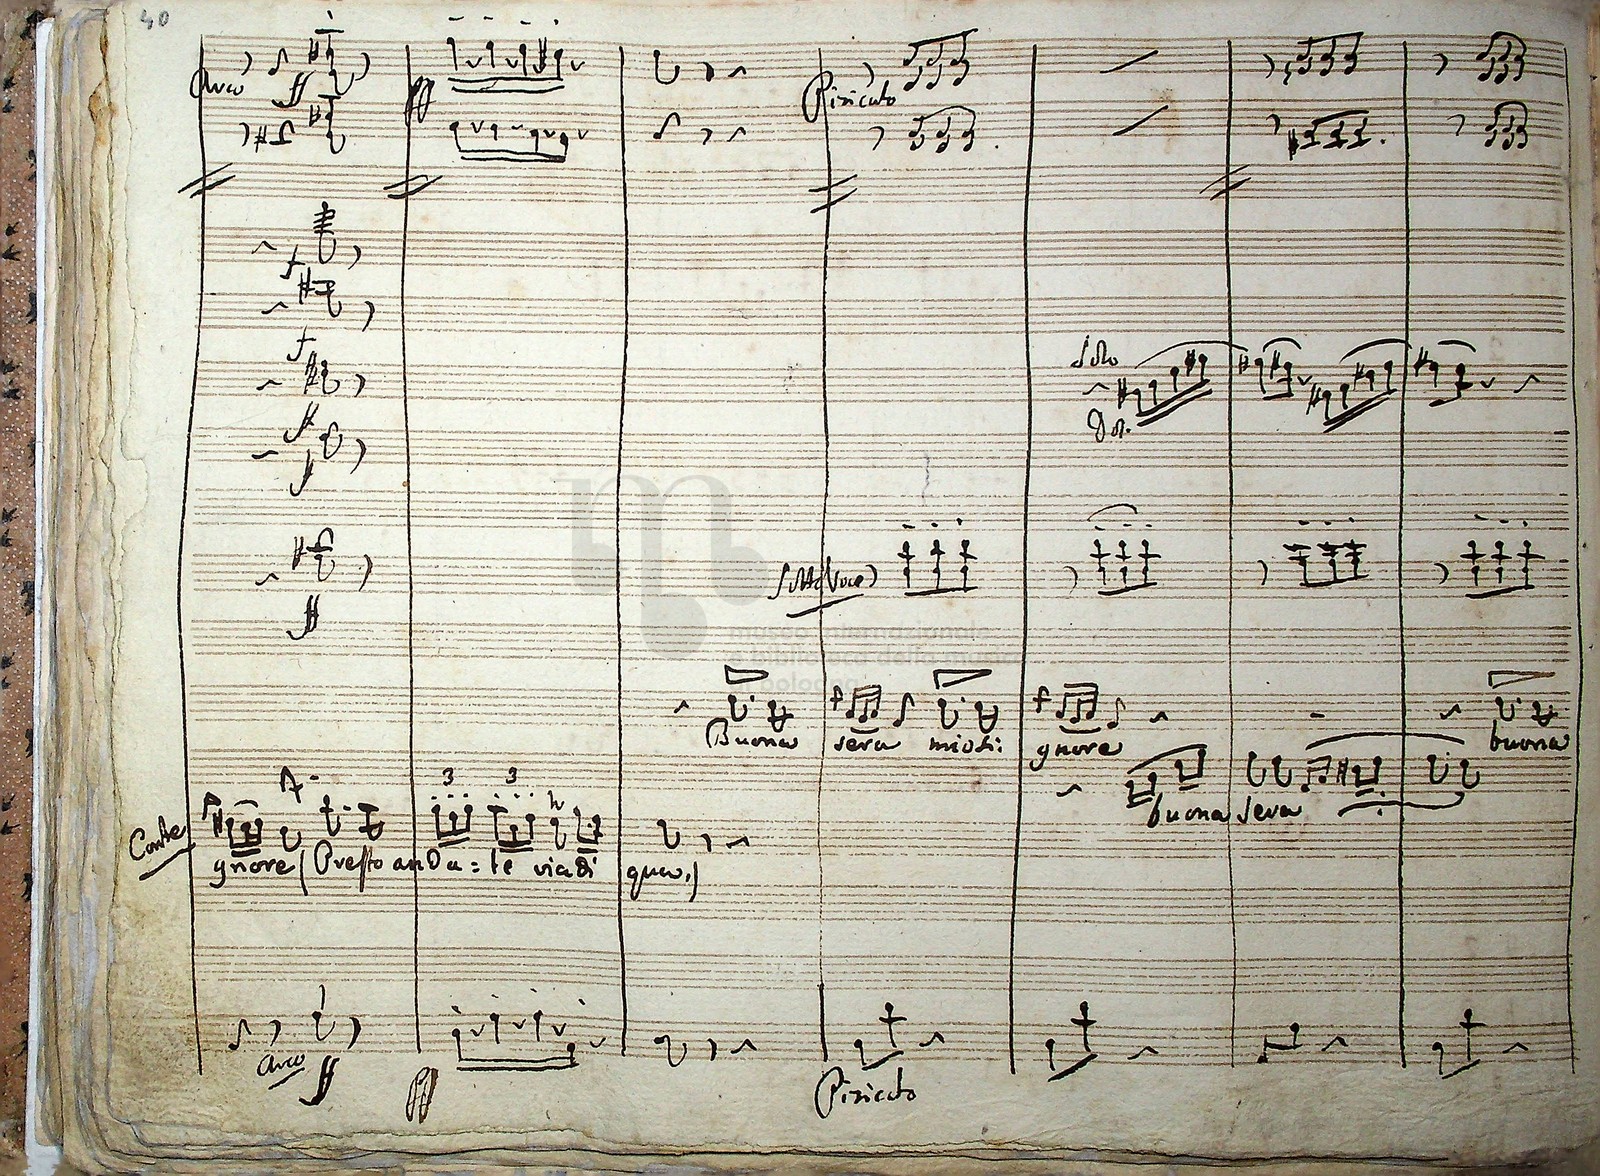 40
Arco ff
ff
Pizicato
f
f
Solo
Dol.
f
f
Sotto Voce
ff
museo internazionale
e biblioteca della musica
di bologna
Buona sera mio Si: gnore buona
buona sera
3 3
Conte
gnore (Presto anda: te via di qua.)
arco ff
ff
Pizicato